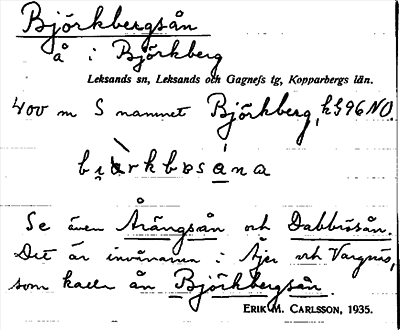 Björkbergsån
å i Björkberg
Leksands sn, Leksands och Gagnefs tg, Kopparbergs län.
400 m S namnet Björkberg, k 596 NO.
Se även Årängsån och Dabbosån.
Det är invånarna i Åjer och Vargnäs,
som kalla ån Björkbergsån.
ERIK M. CARLSSON, 1935.